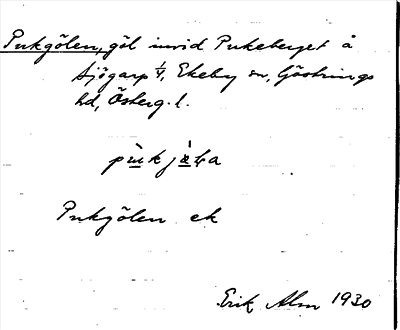 Pukgölen, göl invid Pukeberget å
Sjögarp 1/4, Ekeby sn, Göstrings
hd, Österg. l.
Pukgölen ek
Erik Alm 1930